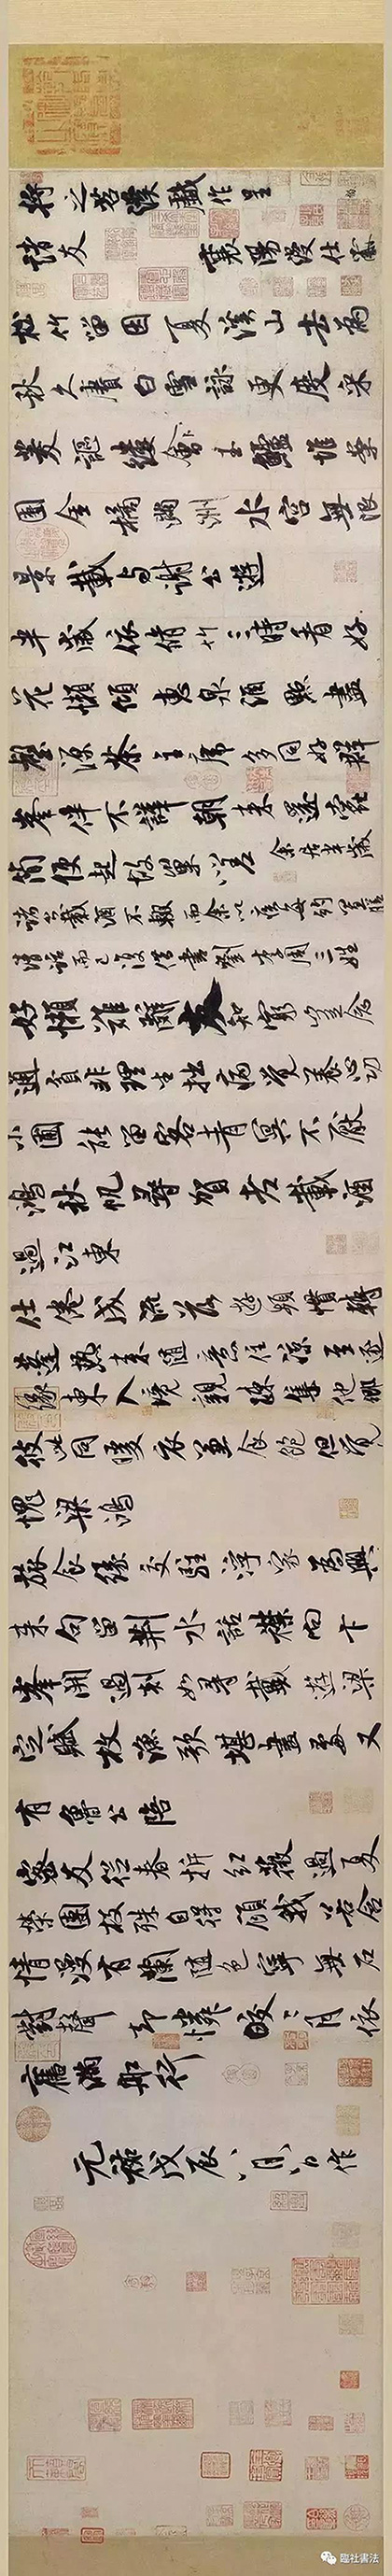 將之苕溪戲作呈
諸友 襄陽漫仕黻
松竹留因夏溪山去為
秋久賡白雪詠更度采
菱謳縷會玉鱸堆案
團金橘滿洲水宮無限
景載與謝公遊
半歲依脩竹三時看好
花懶傾惠泉酒點盡
壑源茶主席多同好群
峯伴不譁朝來還蠹
簡便起故巢嗟 余居半歲
諸公載酒不輟而余以疾每約置膳
清話而已復借書劉李周三姓
好懶難辭友知窮豈念
通貧非理生拙病覺養心功
小圃能留客青冥不厭
鴻秋帆尋賀老載酒
過江東
仕倦成流落遊頻慣轉
蓬熱來隨意住涼至逐
緣東入境親疎集他鄉
彼此同暖衣兼食飽但覺
愧梁鴻
旅食緣交駐浮家為興
來句留荆水話襟向卞
峯開過剡如尋戴遊梁
定賦枚漁歌堪畫處又
有魯公陪
密友從春拆紅薇過夏
榮團枝殊自得顧我若含
情漫有蘭隨色寧無石
對聲却憐皎〻月依
舊滿船行
元祐戊辰八月八日作
臨社書法